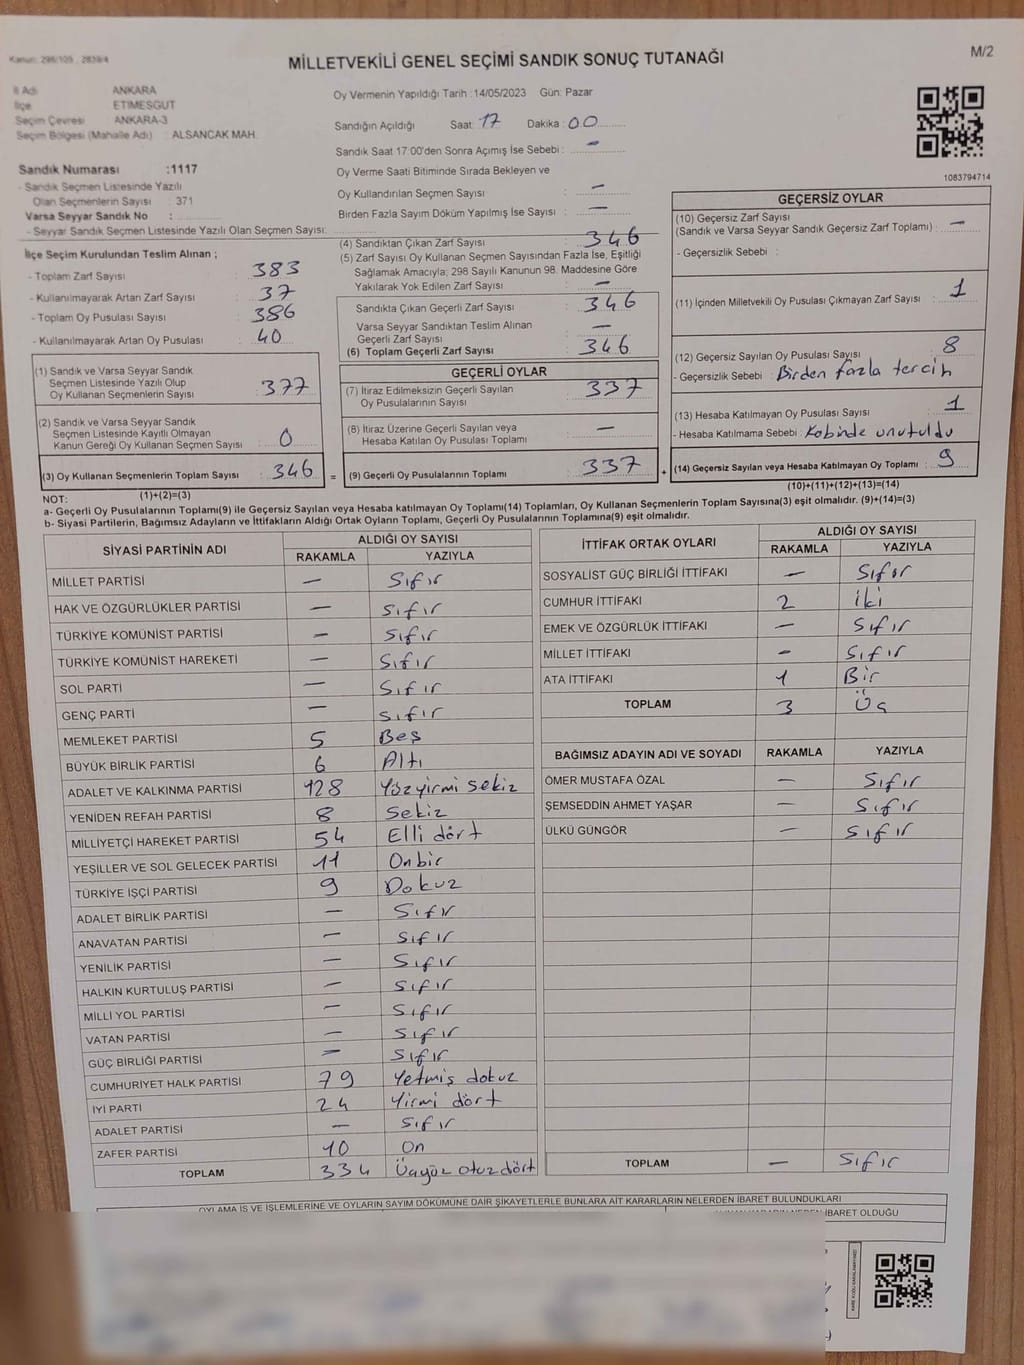 Kanun: 298/105 , 2839/4
MİLLETVEKİLİ GENEL SEÇİMİ SANDIK SONUÇ TUTANAĞI
M/2
İl Adı ANKARA
İlçe ETIMESGUT
Seçim Çevresi ANKARA-3
Seçim Bölgesi (Mahalle Adı) : ALSANCAK MAH.
Sandık Numarası :1117
- Sandık Seçmen Listesinde Yazılı
Olan Seçmenlerin Sayısı : 371
Varsa Seyyar Sandık No :
- Seyyar Sandık Seçmen Listesinde Yazılı Olan Seçmen Sayısı:
Oy Vermenin Yapıldığı Tarih :14/05/2023 Gün: Pazar
Sandığın Açıldığı Saat: 17 Dakika : 00
Sandık Saat 17:00'den Sonra Açımış İse Sebebi : —
Oy Verme Saati Bitiminde Sırada Bekleyen ve
Oy Kullandırılan Seçmen Sayısı : —
Birden Fazla Sayım Döküm Yapılmış İse Sayısı : —
1083794714
İlçe Seçim Kurulundan Teslim Alınan ;
- Toplam Zarf Sayısı : 383
- Kullanılmayarak Artan Zarf Sayısı : 37
- Toplam Oy Pusulası Sayısı : 386
- Kullanılmayarak Artan Oy Pusulası : 40
(1) Sandık ve Varsa Seyyar Sandık
Seçmen Listesinde Yazılı Olup
Oy Kullanan Seçmenlerin Sayısı : 377
(2) Sandık ve Varsa Seyyar Sandık
Seçmen Listesinde Kayıtlı Olmayan
Kanun Gereği Oy Kullanan Seçmen Sayısı : 0
(3) Oy Kullanan Seçmenlerin Toplam Sayısı : 346
(4) Sandıktan Çıkan Zarf Sayısı : 346
(5) Zarf Sayısı Oy Kullanan Seçmen Sayısından Fazla İse, Eşitliği
Sağlamak Amacıyla; 298 Sayılı Kanunun 98. Maddesine Göre
Yakılarak Yok Edilen Zarf Sayısı : —
Sandıkta Çıkan Geçerli Zarf Sayısı : 346
Varsa Seyyar Sandıktan Teslim Alınan
Geçerli Zarf Sayısı : —
(6) Toplam Geçerli Zarf Sayısı : 346
GEÇERLİ OYLAR
(7) İtiraz Edilmeksizin Geçerli Sayılan
Oy Pusulalarının Sayısı : 337
(8) İtiraz Üzerine Geçerli Sayılan veya
Hesaba Katılan Oy Pusulası Toplamı : —
= (9) Geçerli Oy Pusulalarının Toplamı : 337 +
GEÇERSİZ OYLAR
(10) Geçersiz Zarf Sayısı
(Sandık ve Varsa Seyyar Sandık Geçersiz Zarf Toplamı) : —
- Geçersizlik Sebebi :
(11) İçinden Milletvekili Oy Pusulası Çıkmayan Zarf Sayısı : 1
(12) Geçersiz Sayılan Oy Pusulası Sayısı : 8
- Geçersizlik Sebebi : Birden fazla tercih
(13) Hesaba Katılmayan Oy Pusulası Sayısı : 1
- Hesaba Katılmama Sebebi : Kabinde unutuldu
(14) Geçersiz Sayılan veya Hesaba Katılmayan Oy Toplamı : 9
(1)+(2)=(3)
(10)+(11)+(12)+(13)=(14)
NOT:
a- Geçerli Oy Pusulalarının Toplamı(9) ile Geçersiz Sayılan veya Hesaba katılmayan Oy Toplamı(14) Toplamları, Oy Kullanan Seçmenlerin Toplam Sayısına(3) eşit olmalıdır. (9)+(14)=(3)
b- Siyasi Partilerin, Bağımsız Adayların ve İttifakların Aldığı Ortak Oyların Toplamı, Geçerli Oy Pusulalarının Toplamına(9) eşit olmalıdır.
SİYASİ PARTİNİN ADI ALDIĞI OY SAYISI
RAKAMLA YAZIYLA
MİLLET PARTİSİ — Sıfır
HAK VE ÖZGÜRLÜKLER PARTİSİ — Sıfır
TÜRKİYE KOMÜNİST PARTİSİ — Sıfır
TÜRKİYE KOMÜNİST HAREKETİ — Sıfır
SOL PARTİ — Sıfır
GENÇ PARTİ — Sıfır
MEMLEKET PARTİSİ 5 Beş
BÜYÜK BİRLİK PARTİSİ 6 Altı
ADALET VE KALKINMA PARTİSİ 128 Yüzyirmi sekiz
YENİDEN REFAH PARTİSİ 8 Sekiz
MİLLİYETÇİ HAREKET PARTİSİ 54 Elli dört
YEŞİLLER VE SOL GELECEK PARTİSİ 11 Onbir
TÜRKİYE İŞÇİ PARTİSİ 9 Dokuz
ADALET BİRLİK PARTİSİ — Sıfır
ANAVATAN PARTİSİ — Sıfır
YENİLİK PARTİSİ — Sıfır
HALKIN KURTULUŞ PARTİSİ — Sıfır
MİLLİ YOL PARTİSİ — Sıfır
VATAN PARTİSİ — Sıfır
GÜÇ BİRLİĞİ PARTİSİ — Sıfır
CUMHURİYET HALK PARTİSİ 79 Yetmiş dokuz
İYİ PARTİ 24 Yirmi dört
ADALET PARTİSİ — Sıfır
ZAFER PARTİSİ 10 On
TOPLAM 334 Üçyüz otuzdört
İTTİFAK ORTAK OYLARI ALDIĞI OY SAYISI
RAKAMLA YAZIYLA
SOSYALİST GÜÇ BİRLİĞİ İTTİFAKI — Sıfır
CUMHUR İTTİFAKI 2 İki
EMEK VE ÖZGÜRLÜK İTTİFAKI — Sıfır
MİLLET İTTİFAKI — Sıfır
ATA İTTİFAKI 1 Bir
TOPLAM 3 Üç
BAĞIMSIZ ADAYIN ADI VE SOYADI RAKAMLA YAZIYLA
ÖMER MUSTAFA ÖZAL — Sıfır
ŞEMSEDDİN AHMET YAŞAR — Sıfır
ÜLKÜ GÜNGÖR — Sıfır
TOPLAM — Sıfır
OYLAMA İŞ VE İŞLEMLERİNE VE OYLARIN SAYIM DÖKÜMÜNE DAİR ŞİKAYETLERLE BUNLARA AİT KARARLARIN NELERDEN İBARET BULUNDUKLARI
İBARET OLDUĞU